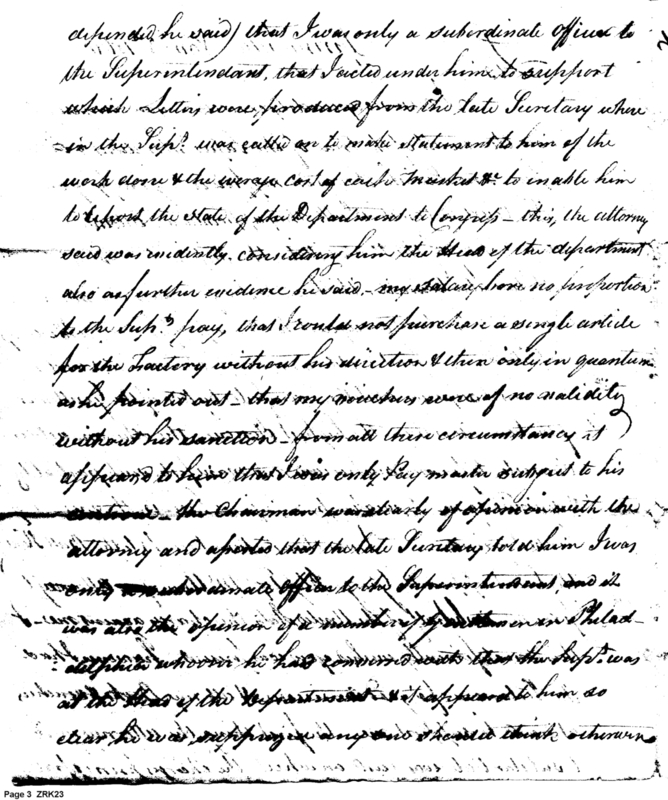 depended, he said) that I was only a subordinate Officer to
the Superintendant, that I acted under him, to support
which Letters were produced from the late Secretary where
-in the Sup.t was called on to make statement to him of the
work done & the average cost of each Musket &c to inable him
to report the state of the Department to Congress - this, the attorney
said was evidently considering him the Head of the department
also as further evidence he said - my salary bore no proportion
to the Sup.ts pay, that I could not purchase a single article
for the Factory without his direction & then only in quantum
as he pointed out - that my vouchers were of no validity
without his sanction - from all these circumstances it
appeared to him that I was only Pay master subject to his
controul - the Chairman was clearly of opinion with the
attorney and asserted that the late Secretary told him I was
only subordinate Officer to the Superintendent, and it
was also the opinion of a number of gentlemen in Philad-
-delphia whoever he had conversed with that the Sup.t was
at the Head of the Department & it appeared to him so
clear, he was surprized any one should think otherwise
Page 3 ZRK23